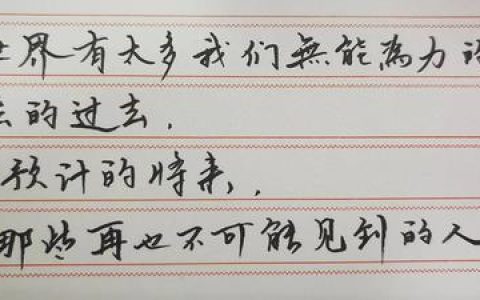 世界有太多我们無能為力的
的过去.
预计的将来,.
那些再也不可能见到的人